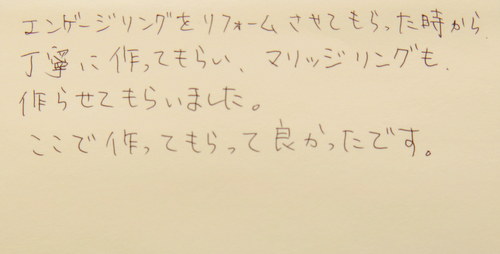 エンゲージリングをリフォームさせてもらった時から
丁寧に作ってもらい、マリッジリングも、
作らせてもらいました。
ここで作ってもらって良かったです。